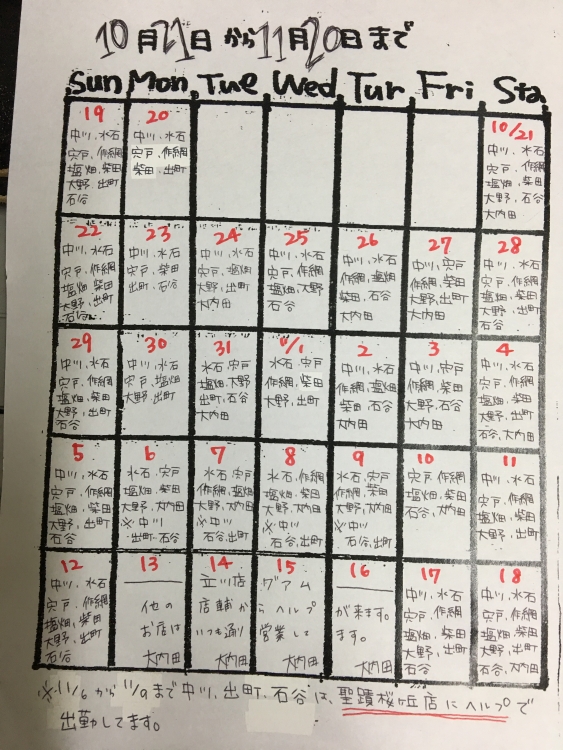 10月21日から11月20日まで
Sun Mon Tue Wed Tur Fri Sta
19
中川、水石
宍戸、作網
塩畑、柴田
大野、出町
石谷
20
中川、水石
宍戸、作網
柴田、出町
10/21
中川、水石
宍戸、作網
塩畑、柴田
大野、石谷
大内田
22
中川、水石
宍戸、作網
塩畑、柴田
大野、出町
石谷
23
中川、水石
宍戸、柴田
出町、石谷
24
中川、水石
宍戸、塩畑
大野、出町
大内田
25
中川、水石
宍戸、作網
塩畑、大野
石谷
26
中川、水石
作網、塩畑
柴田、石谷
大内田
27
中川、宍戸
作網、柴田
大野、出町
大内田
28
中川、水石
宍戸、作網
塩畑、柴田
大野、出町
石谷
29
中川、水石
宍戸、作網
塩畑、柴田
大野、出町
石谷
30
中川、水石
宍戸、塩畑
大野、出町
31
水石、宍戸
塩畑、大野
出町、石谷
大内田
11/1
水石、宍戸
作網、柴田
大野、出町
2
中川、水石
作網、塩畑
柴田、石谷
大内田
3
中川、宍戸
作網、柴田
大野、石谷
大内田
4
中川、水石
宍戸、作網
塩畑、柴田
大野、出町
石谷、大内田
5
中川、水石
宍戸、作網
塩畑、柴田
大野、出町
石谷
6
水石、宍戸
塩畑、柴田
大野、大内田
※中川
出町、石谷
7
水石、宍戸
作網、塩畑
大野、大内田
※中川
石谷、出町
8
水石、作網
塩畑、柴田
大野、大内田
※中川
石谷、出町
9
水石、宍戸
作網、柴田
大野、大内田
※中川
石谷、出町
10
宍戸、作網
塩畑、柴田
大野、出町
石谷、大内田
11
中川、水石
宍戸、作網
塩畑、柴田
大野、出町
石谷
12
中川、水石
宍戸、作網
塩畑、柴田
大野、出町
石谷
13 14 15 16
立川店 グアム
他の店舗からヘルプが来ます。
お店はいつも通り営業してます。
大内田 大内田 大内田 大内田
17
中川、水石
宍戸、作網
塩畑、柴田
大野、出町
石谷
18
中川、水石
宍戸、作網
塩畑、柴田
大野、出町
石谷
※11/6から11/9まで中川、出町、石谷は、聖蹟桜ヶ丘店にヘルプで
出勤してます。